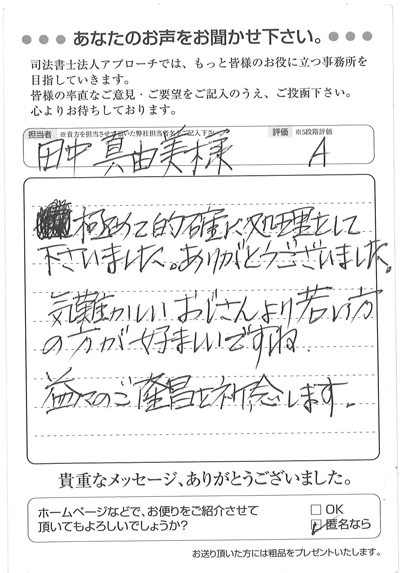 ●●● あなたのお声をお聞かせ下さい。 ●●●
司法書士法人アプローチでは、もっと皆様のお役に立つ事務所を
目指していきます。
皆様の率直なご意見・ご要望をご記入のうえ、ご投函下さい。
心よりお待ちしております。
担当者 ※貴方を担当させて頂いた弊社担当者名をご記入下さい 評価 ※5段階評価
田中真由美様 A
極めて的確に処理をして
下さいました。ありがとうございました。
気難かしいおじさんより若い方
の方が好ましいですね.
益々のご隆昌を祈念します。
貴重なメッセージ、ありがとうございました。
ホームページなどで、お便りをご紹介させて
頂いてもよろしいでしょうか?
□ OK
□ 匿名なら
お送り頂いた方には粗品をプレゼントいたします。